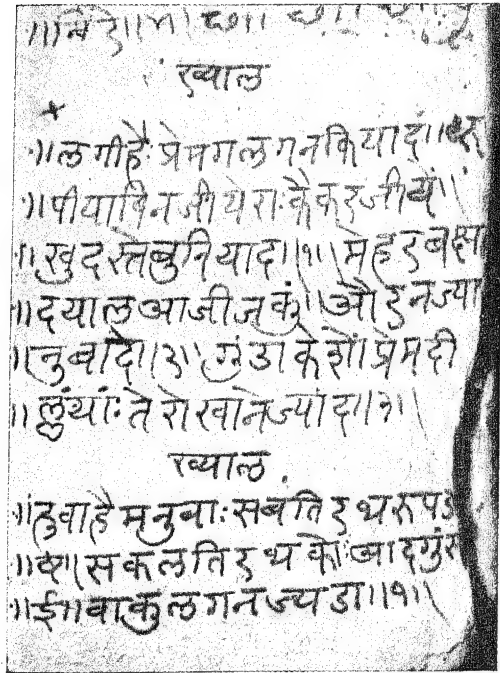 ख्याल
॥लगीहैः प्रेमगलगनकियादं॥
॥पीयाबिनजीयेराःकैकरजीयें॥
॥खुदस्तेबुनियाद॥१॥मेहरबक्ष
॥दयालआजीजकुं॥औरनज्या
॥नुबादे॥२॥गुंडाकेशें॥प्रेमदी
॥लुंयांःतेरोखानेज्यांद॥३॥
ख्याल
॥हुवाहैमनुवाःसबतिरथरूपड
॥सकलतिरथकोःआदगुंरु
॥ई॥वाकुलगनज्यडा॥१॥